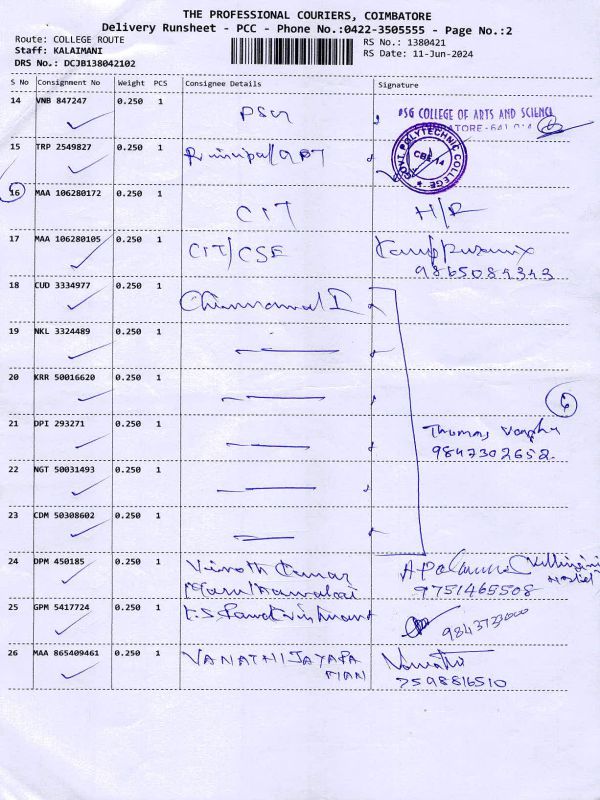 THE PROFESSIONAL COURIERS, COIMBATORE
Delivery Runsheet - PCC - Phone No.:0422-3505555 - Page No.:2
Route: COLLEGE ROUTE
Staff: KALAIMANI
DRS No.: DCJB138042102
RS No.: 1380421
RS Date: 11-Jun-2024
S No Consignment No Weight PCS Consignee Details Signature
14 VNB 847247 0.250 1
PSG COLLEGE OF ARTS AND SCIENCE
15 TRP 2549827 0.250 1 Principal/GPT
GOVT POLYTECHNIC COLLEGE
CBE-14
16 MAA 106280172 0.250 1 CIT H/R
17 MAA 106280105 0.250 1 CIT/CSE
18 CUD 3334977 0.250 1
19 NKL 3324489 0.250 1
20 KRR 50016620 0.250 1
6
21 DPI 293271 0.250 1 Thomas
9847302652
22 NGT 50031493 0.250 1
23 CDM 50308602 0.250 1
24 DPM 450185 0.250 1 Vinoth Kumar
9751465508
25 GPM 5417724 0.250 1
26 MAA 865409461 0.250 1 VANATHI JAYARA
MAN 7598816510